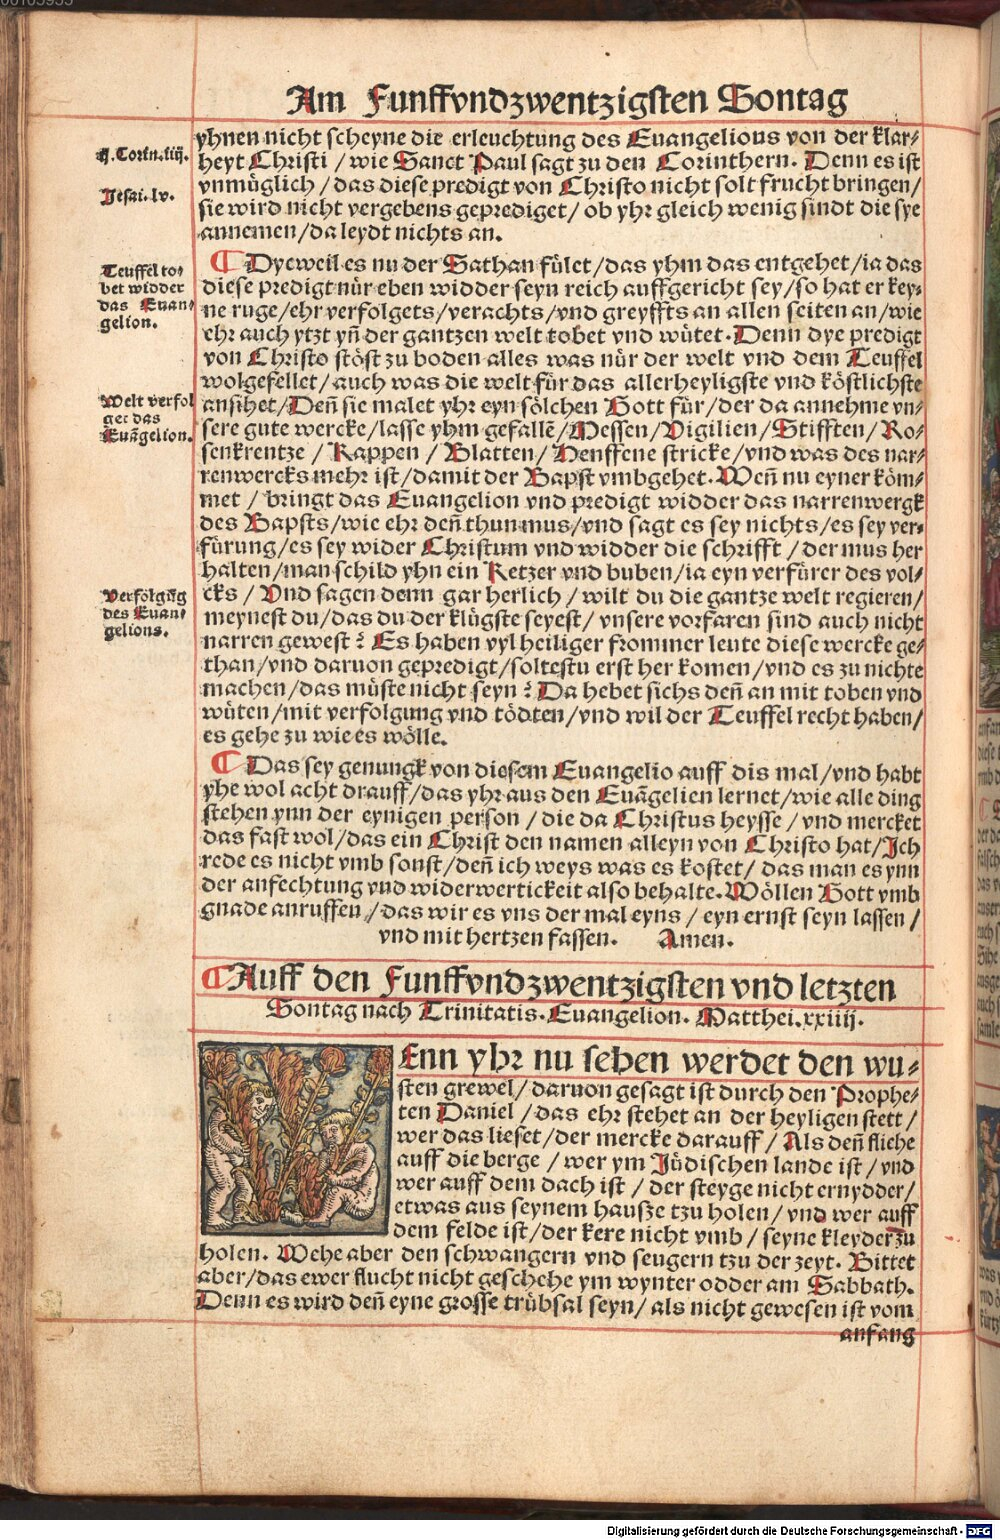 Am Funffvndzwentzigsten Sontag
yhnen nicht scheyne die erleuchtung des Euangelious von der klar⸗
heyt Christi / wie Sanct Paul sagt zu den Corinthern. Denn es ist
vnmüglich / das diese predigt von Christo nicht solt frucht bringen/
sie wird nicht vergebens geprediget / ob yhr gleich wenig sindt die sye
annemen/da leydt nichts an.
ij. Corin. iiij.
Jesai. lv.
¶ Dyeweil es nu der Sathan fület/das yhm das entgehet/ia das
diese predigt nür eben widder seyn reich auffgericht sey/so hat er key⸗
ne ruge/ehr verfolgets/verachts/vnd greyffts an allen seiten an/wie
ehr auch ytzt yñ der gantzen welt tobet vnd wütet. Denn dye predigt
von Christo stöst zu boden alles was nür der welt vnd dem Teuffel
wolgefellet/auch was die welt für das allerheyligste vnd köstlichste
ansihet/Deñ sie malet yhr eyn sölchen Gott für/der da annehme vn⸗
sere gute wercke/lasse yhm gefallẽ/Messen/Vigilien/Stifften/Ro⸗
senkrentze / Kappen / Blatten/Henffene stricke/vnd was des nar⸗
renwercks mehr ist/damit der Bapst vmbgehet. Weñ nu eyner köm⸗
met / bringt das Euangelion vnd predigt widder das narrenwergk
des Bapsts/wie ehr deñ thun mus/vnd sagt es sey nichts/es sey ver⸗
fürung/es sey wider Christum vnd widder die schrifft / der mus her
halten/man schild yhn ein Ketzer vnd buben/ia eyn verfürer des vol⸗
cks / Vnd sagen denn gar herlich / wilt du die gantze welt regieren/
meynest du/das du der klügste seyest/ vnsere vorfaren sind auch nicht
narren gewest? Es haben vyl heiliger frommer leute diese wercke ge⸗
than/vnd daruon gepredigt/soltestu erst her komen/vnd es zu nichte
machen/das müste nicht seyn? Da hebet sichs deñ an mit toben vnd
wüten/mit verfolgung vnd tödten/vnd wil der Teuffel recht haben/
es gehe zu wie es wölle.
Teuffel to⸗
bet widder
das Euan⸗
gelion.
Welt verfol
get das
Euãgelion.
Verfolgũg
des Euan⸗
gelions.
¶ Das sey genungk von diesem Euangelio auff dis mal/vnd habt
yhe wol acht drauff/das yhr aus den Euãgelien lernet/wie alle ding
stehen ynn der eynigen person / die da Christus heysse / vnd mercket
das fast wol/das ein Christ den namen alleyn von Christo hat/Ich
rede es nicht vmb sonst/deñ ich weys was es kostet/ das man es ynn
der anfechtung vnd widerwertickeit also behalte. Wöllen Gott vmb
gnade anruffen/das wir es vns der mal eyns / eyn ernst seyn lassen/
vnd mit hertzen fassen. Amen.
¶ Auff den Funffvndzwentzigsten vnd letzten
Sontag nach Trinitatis. Euangelion. Matthei. xxiiij.
Enn yhr nu sehen werdet den wu⸗
sten grewel/daruon gesagt ist durch den Prophe⸗
ten Daniel /das ehr stehet an der heyligen stett/
wer das lieset/der mercke darauff/ Als deñ fliehe
auff die berge / wer ym Jüdischen lande ist / vnd
wer auff dem dach ist / der steyge nicht ernydder/
etwas aus seynem hausze tzu holen/ vnd wer auff
dem felde ist/der kere nicht vmb / seyne kleyder zu
holen. Wehe aber den schwangern vnd seugern tzu der zeyt. Bittet
aber/das ewer flucht nicht geschehe ym wynter odder am Sabbath.
Denn es wird deñ eyne grosse trübsal seyn/ als nicht gewesen ist vom
anfang
Digitalisierung gefördert durch die Deutsche Forschungsgemeinschaft - DFG